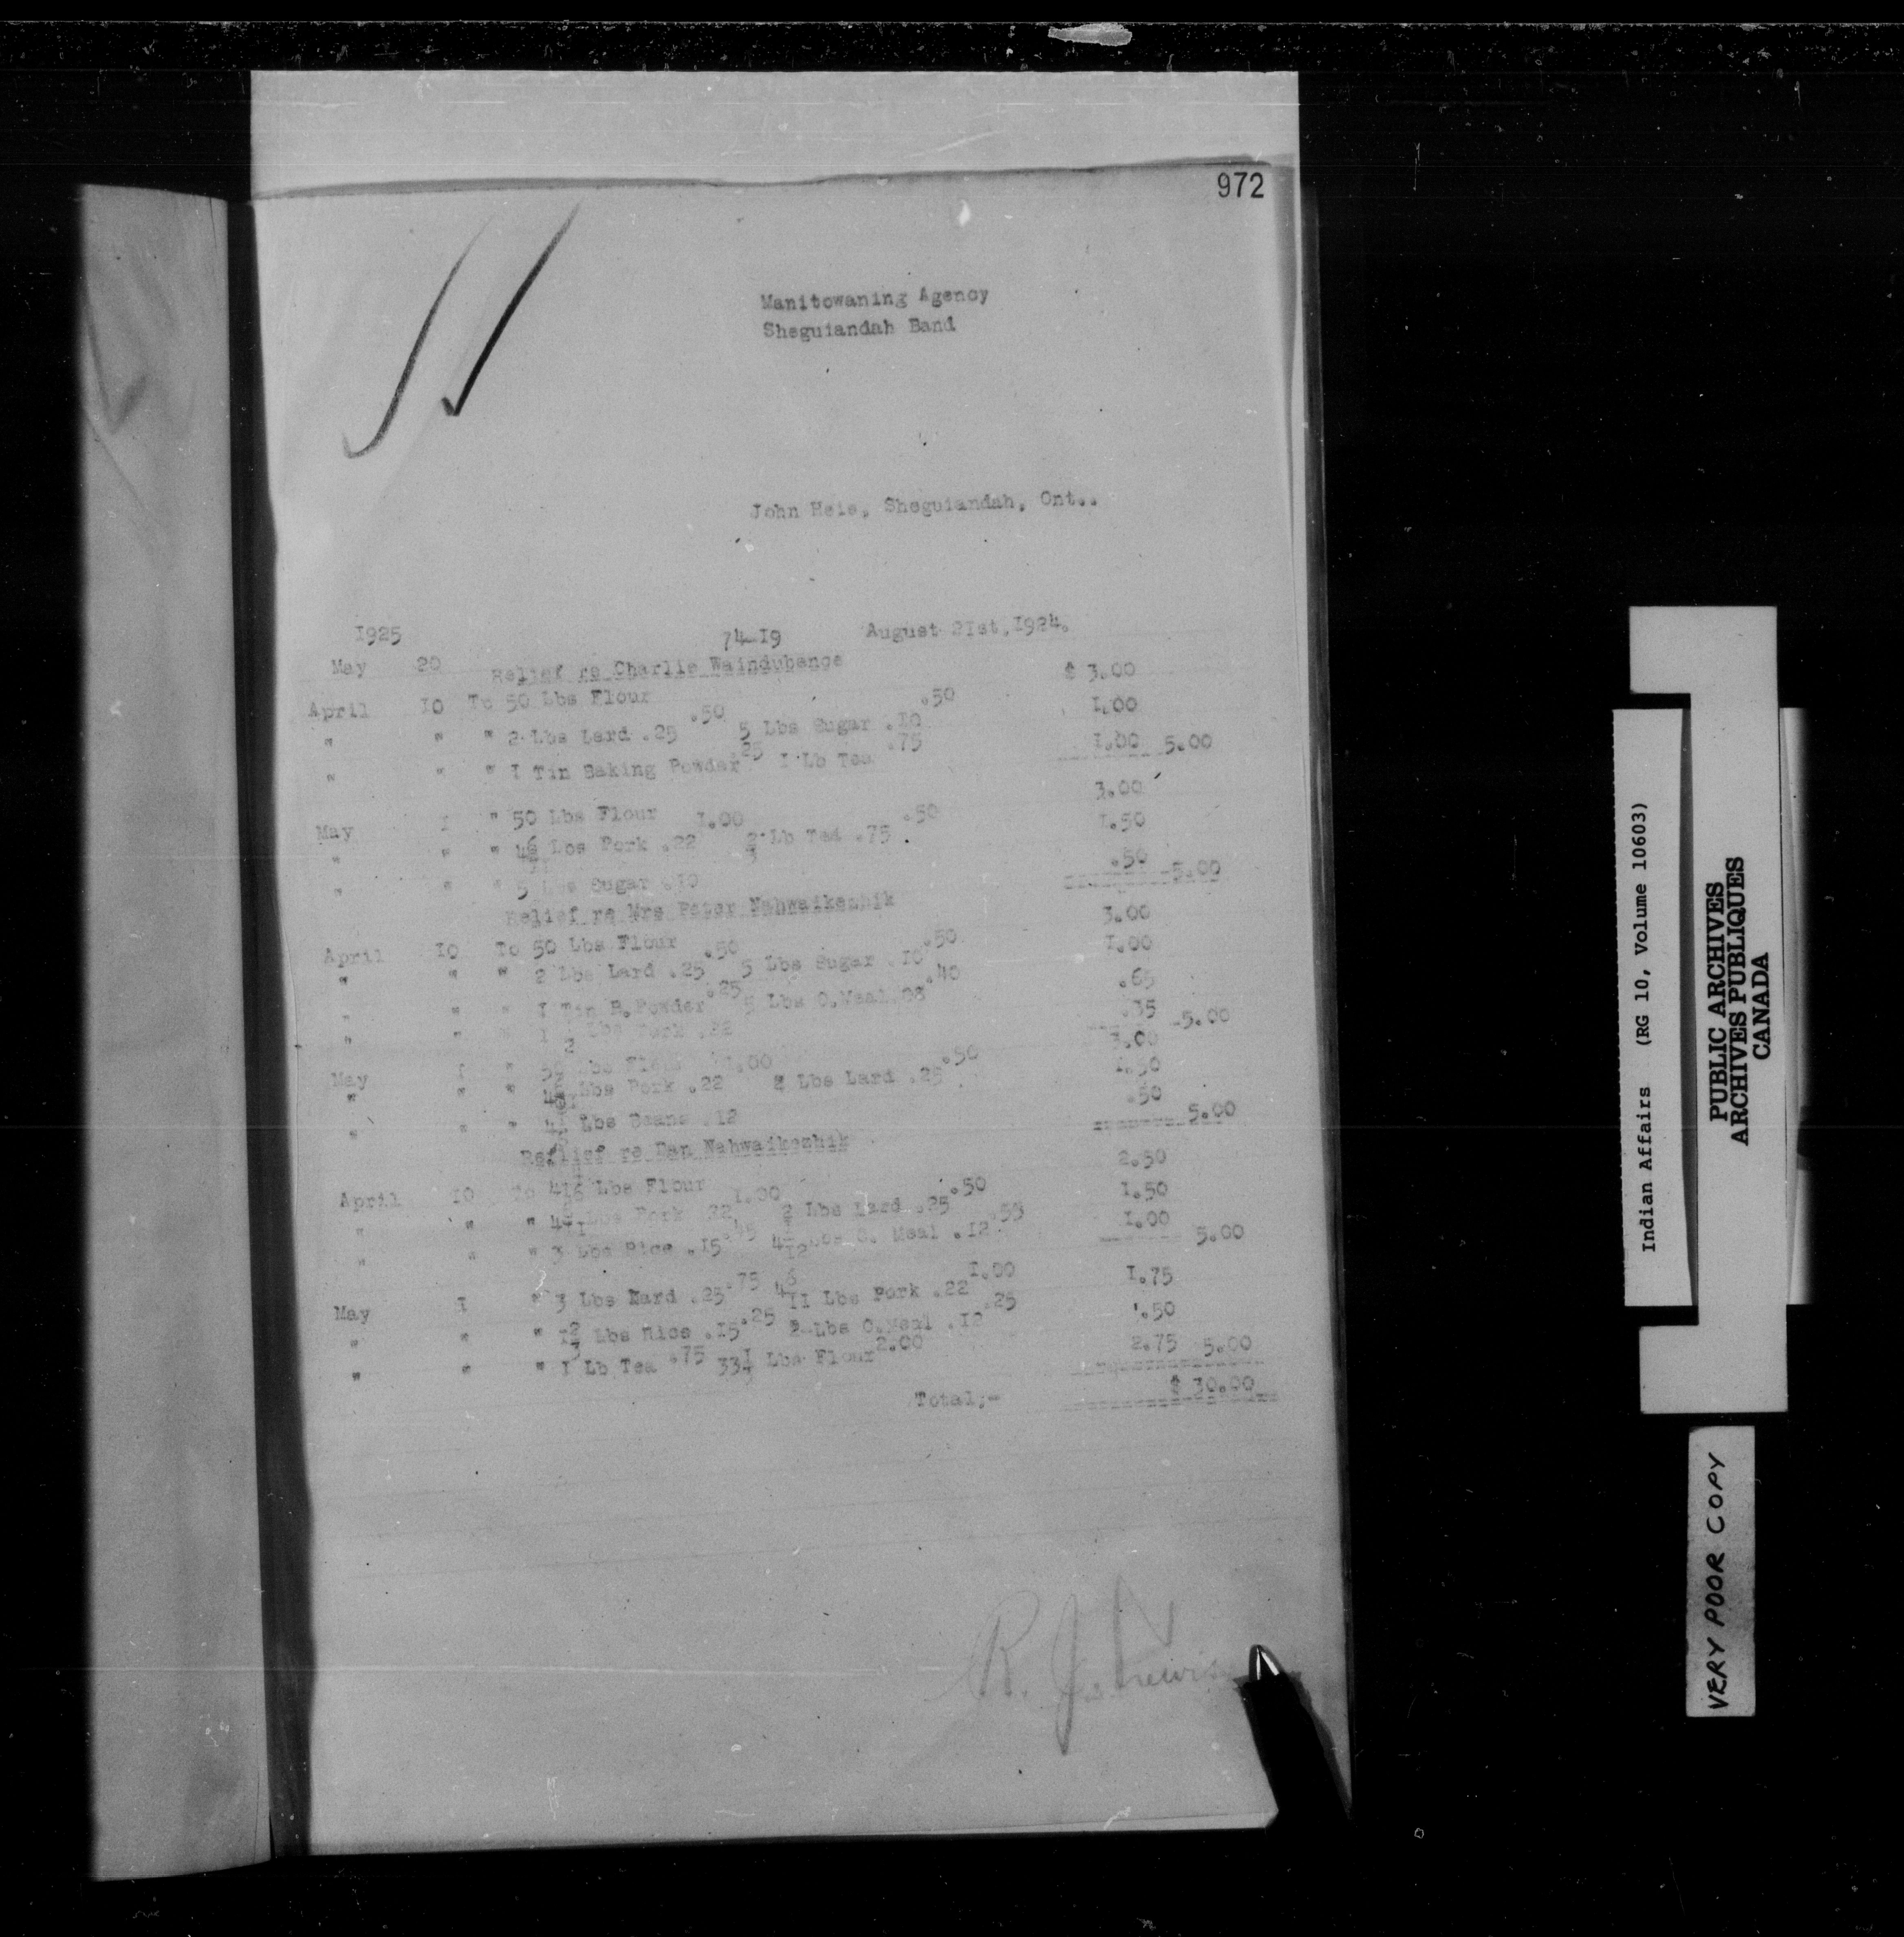 972
Manitowaning Agency
Sheguiandah Band
John Heis, Sheguiandah, Ont..
1925 74-19 August 21st, 1924.
May 20 Relief re Charlie Waindubence
April 10 To 50 Lbs Flour $ 3.00
" " " 2 Lbs Lard .25 .50 5 Lbs Sugar .10 .50 1.00
" " " 1 Tin Baking Powder .25 1 Lb Tea .75 1.00 5.00
May 1 " 50 Lbs Flour 3.00
" " " 4 6/11 Lbs Pork .22 1.00 2/3 Lb Tea .75 .50 1.50
" " " 5 Lbs Sugar .10 .50 5.00
Relief re Mrs Peter Nahwaikezhik
April 10 To 50 Lbs Flour 3.00
" " " 2 Lbs Lard .25 .50 5 Lbs Sugar .10 .50 1.00
" " " 1 Tin B.Powder .25 5 Lbs O.Meal .08 .40 .65
" " 1 Lbs Pork .22 .35 5.00
May " " Lbs 1.00 3.00
" " " 4 Lbs Pork .22 2 Lbs Lard .25 .50
" " " 4 Lbs Beans .12 .50 5.00
Relief re Dan Nahwaikezhik
April 10 To 41 Lbs Flour 2.50
" " " 4 Lbs Pork .22 1.00 2 Lbs Lard .25 .50 1.50
" " " 3 Lbs Rice .15 .45 4 7/12 Lbs O. Meal .12 .55 1.00 5.00
May 1 " 3 Lbs Lard .25 .75 4 6/11 Lbs Pork .22 1.00 1.75
" " " 1 2/3 Lbs Rice .15 .25 2 Lbs O.Meal .12 .25 .50
" " " 1 Lb Tea .75 33 1/3 Lbs Flour 2.00 2.75 5.00
Total;- $ 30.00
R. J. Lewis
Indian Affairs (RG 10, Volume 10603)
PUBLIC ARCHIVES
ARCHIVES PUBLIQUES
CANADA
VERY POOR COPY